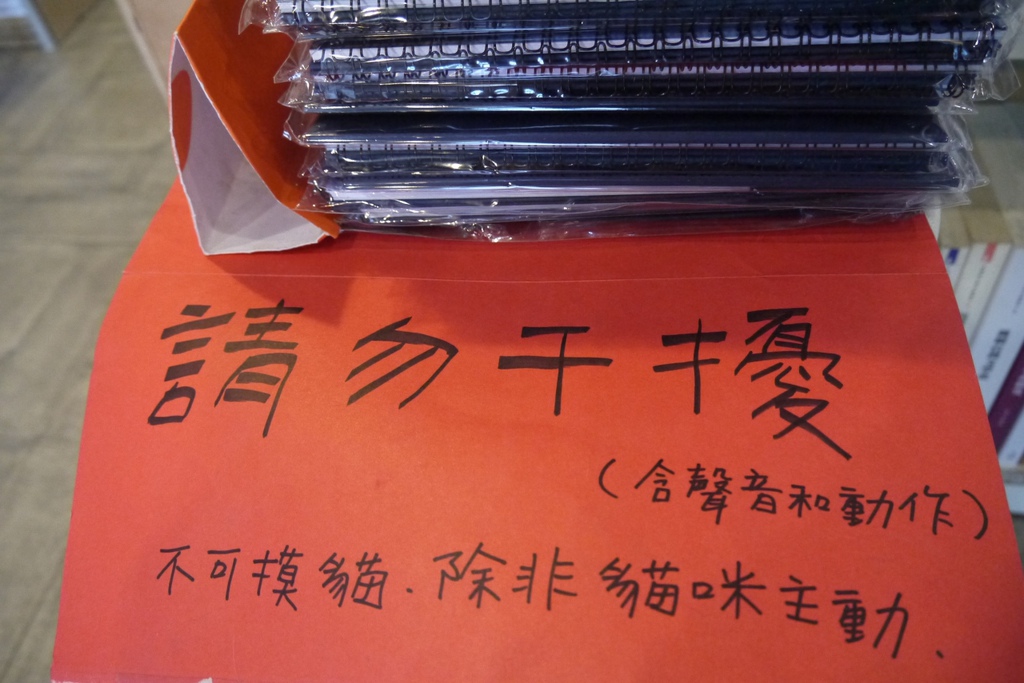 請勿干擾
(含聲音和動作)
不可摸貓.除非貓咪主動.